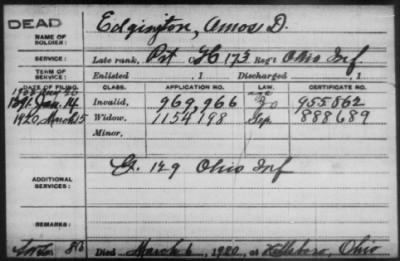 DEAD
NAME OF SOLDIER: Edgington, Amos D.
SERVICE: Late rank, Pvt Co. H 173 Reg't Ohio Inf
TERM OF SERVICE: Enlisted , 1 Discharged , 1
DATE OF FILING. CLASS. APPLICATION NO. LAW. CERTIFICATE NO.
1891 Jan. 14 Invalid, 969,966 955862
1920 March 15 Widow, 1154198 Sep. 888689
Minor,
ADDITIONAL SERVICES: G. 129 Ohio Inf
REMARKS:
Died March 6, 1920, at Hillsboro, Ohio